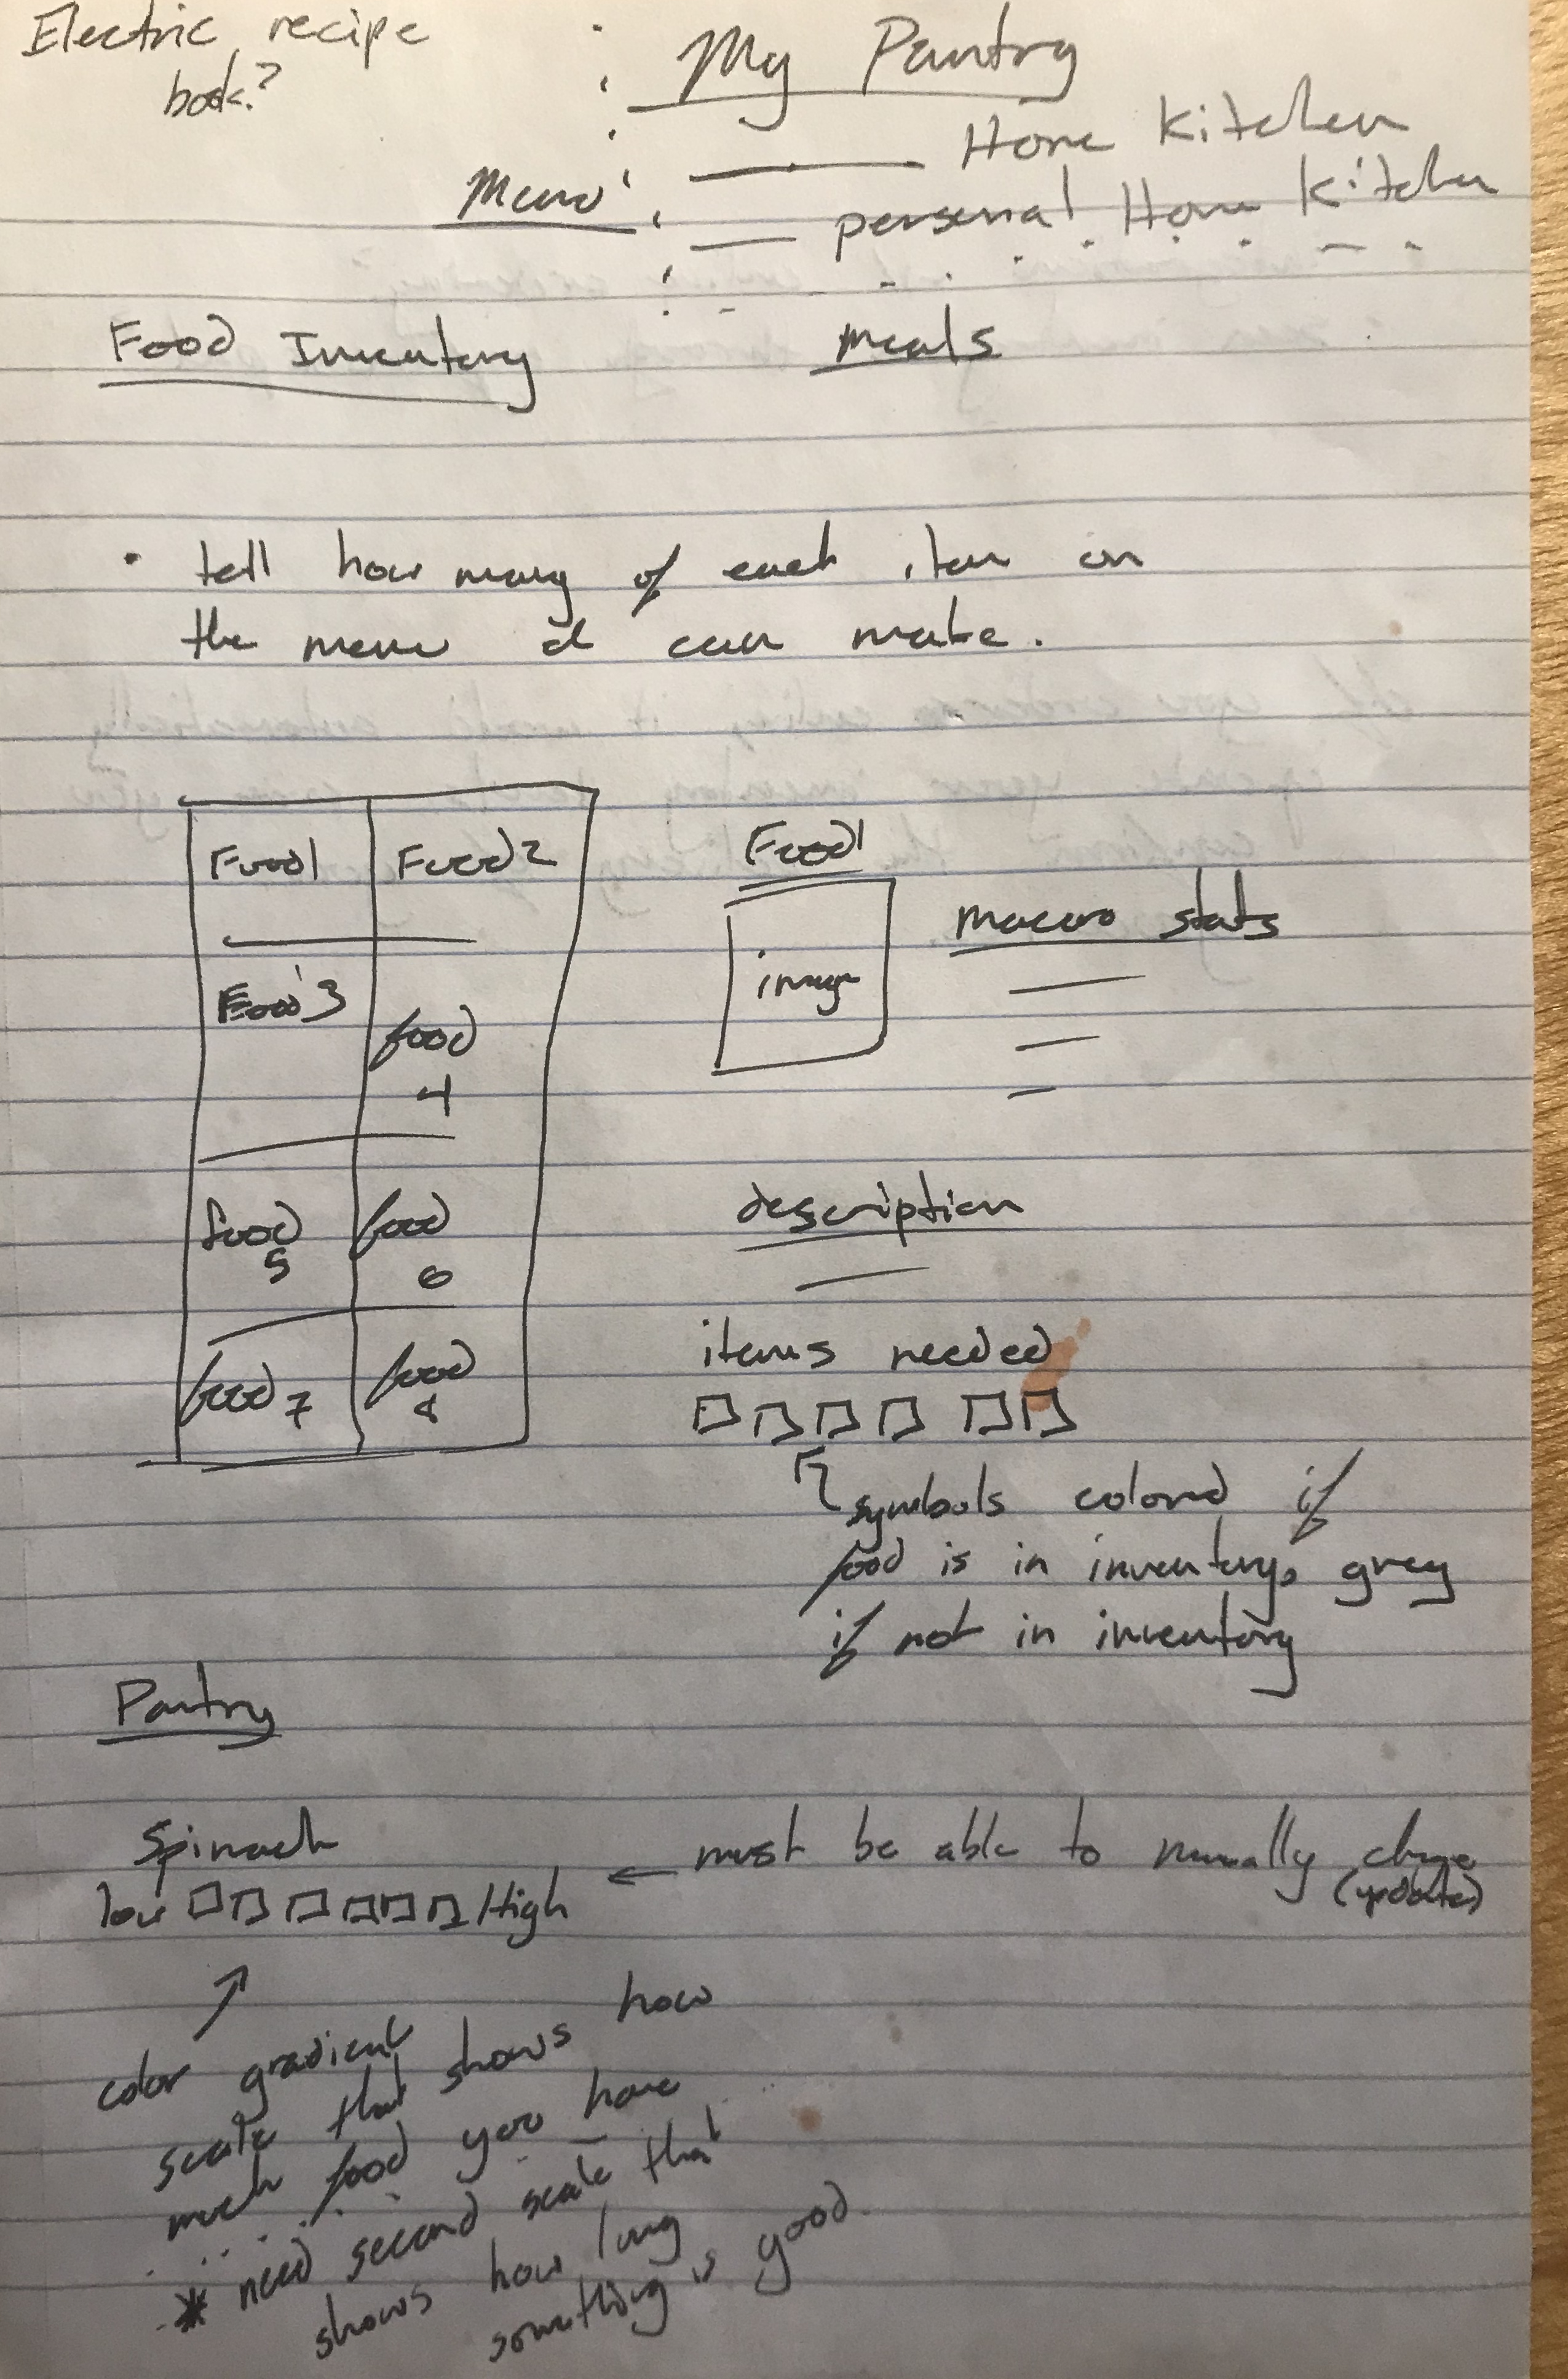 Electric recipe
book?
My Pantry
Home Kitchen
Menu
personal Home Kitchen
Food Inventory
meals
• tell how many of each item on
the menu I can make.
Food1 Food2
Food3 food
4
food food
5 6
food 7 food
8
Food1
image
macro stats
description
items needed
symbols colored if
food is in inventory, grey
if not in inventory
Pantry
Spinach
low High
← must be able to manually change
(update)
color gradient
scale that shows how
much food you have
* need second scale that
shows how long
something is good.